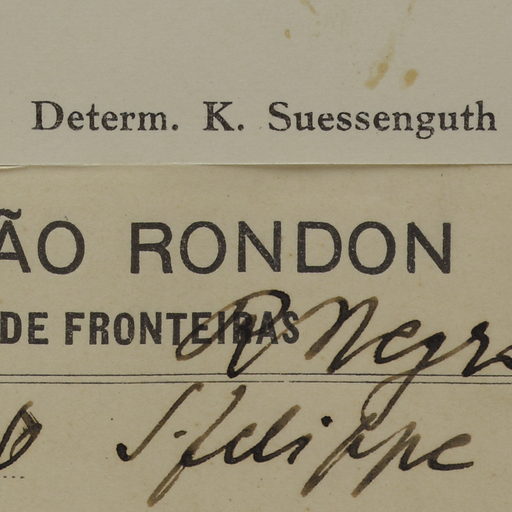 Determ. K. Suessenguth
ÃO RONDON
DE FRONTEIRAS R Negro
S. felippe